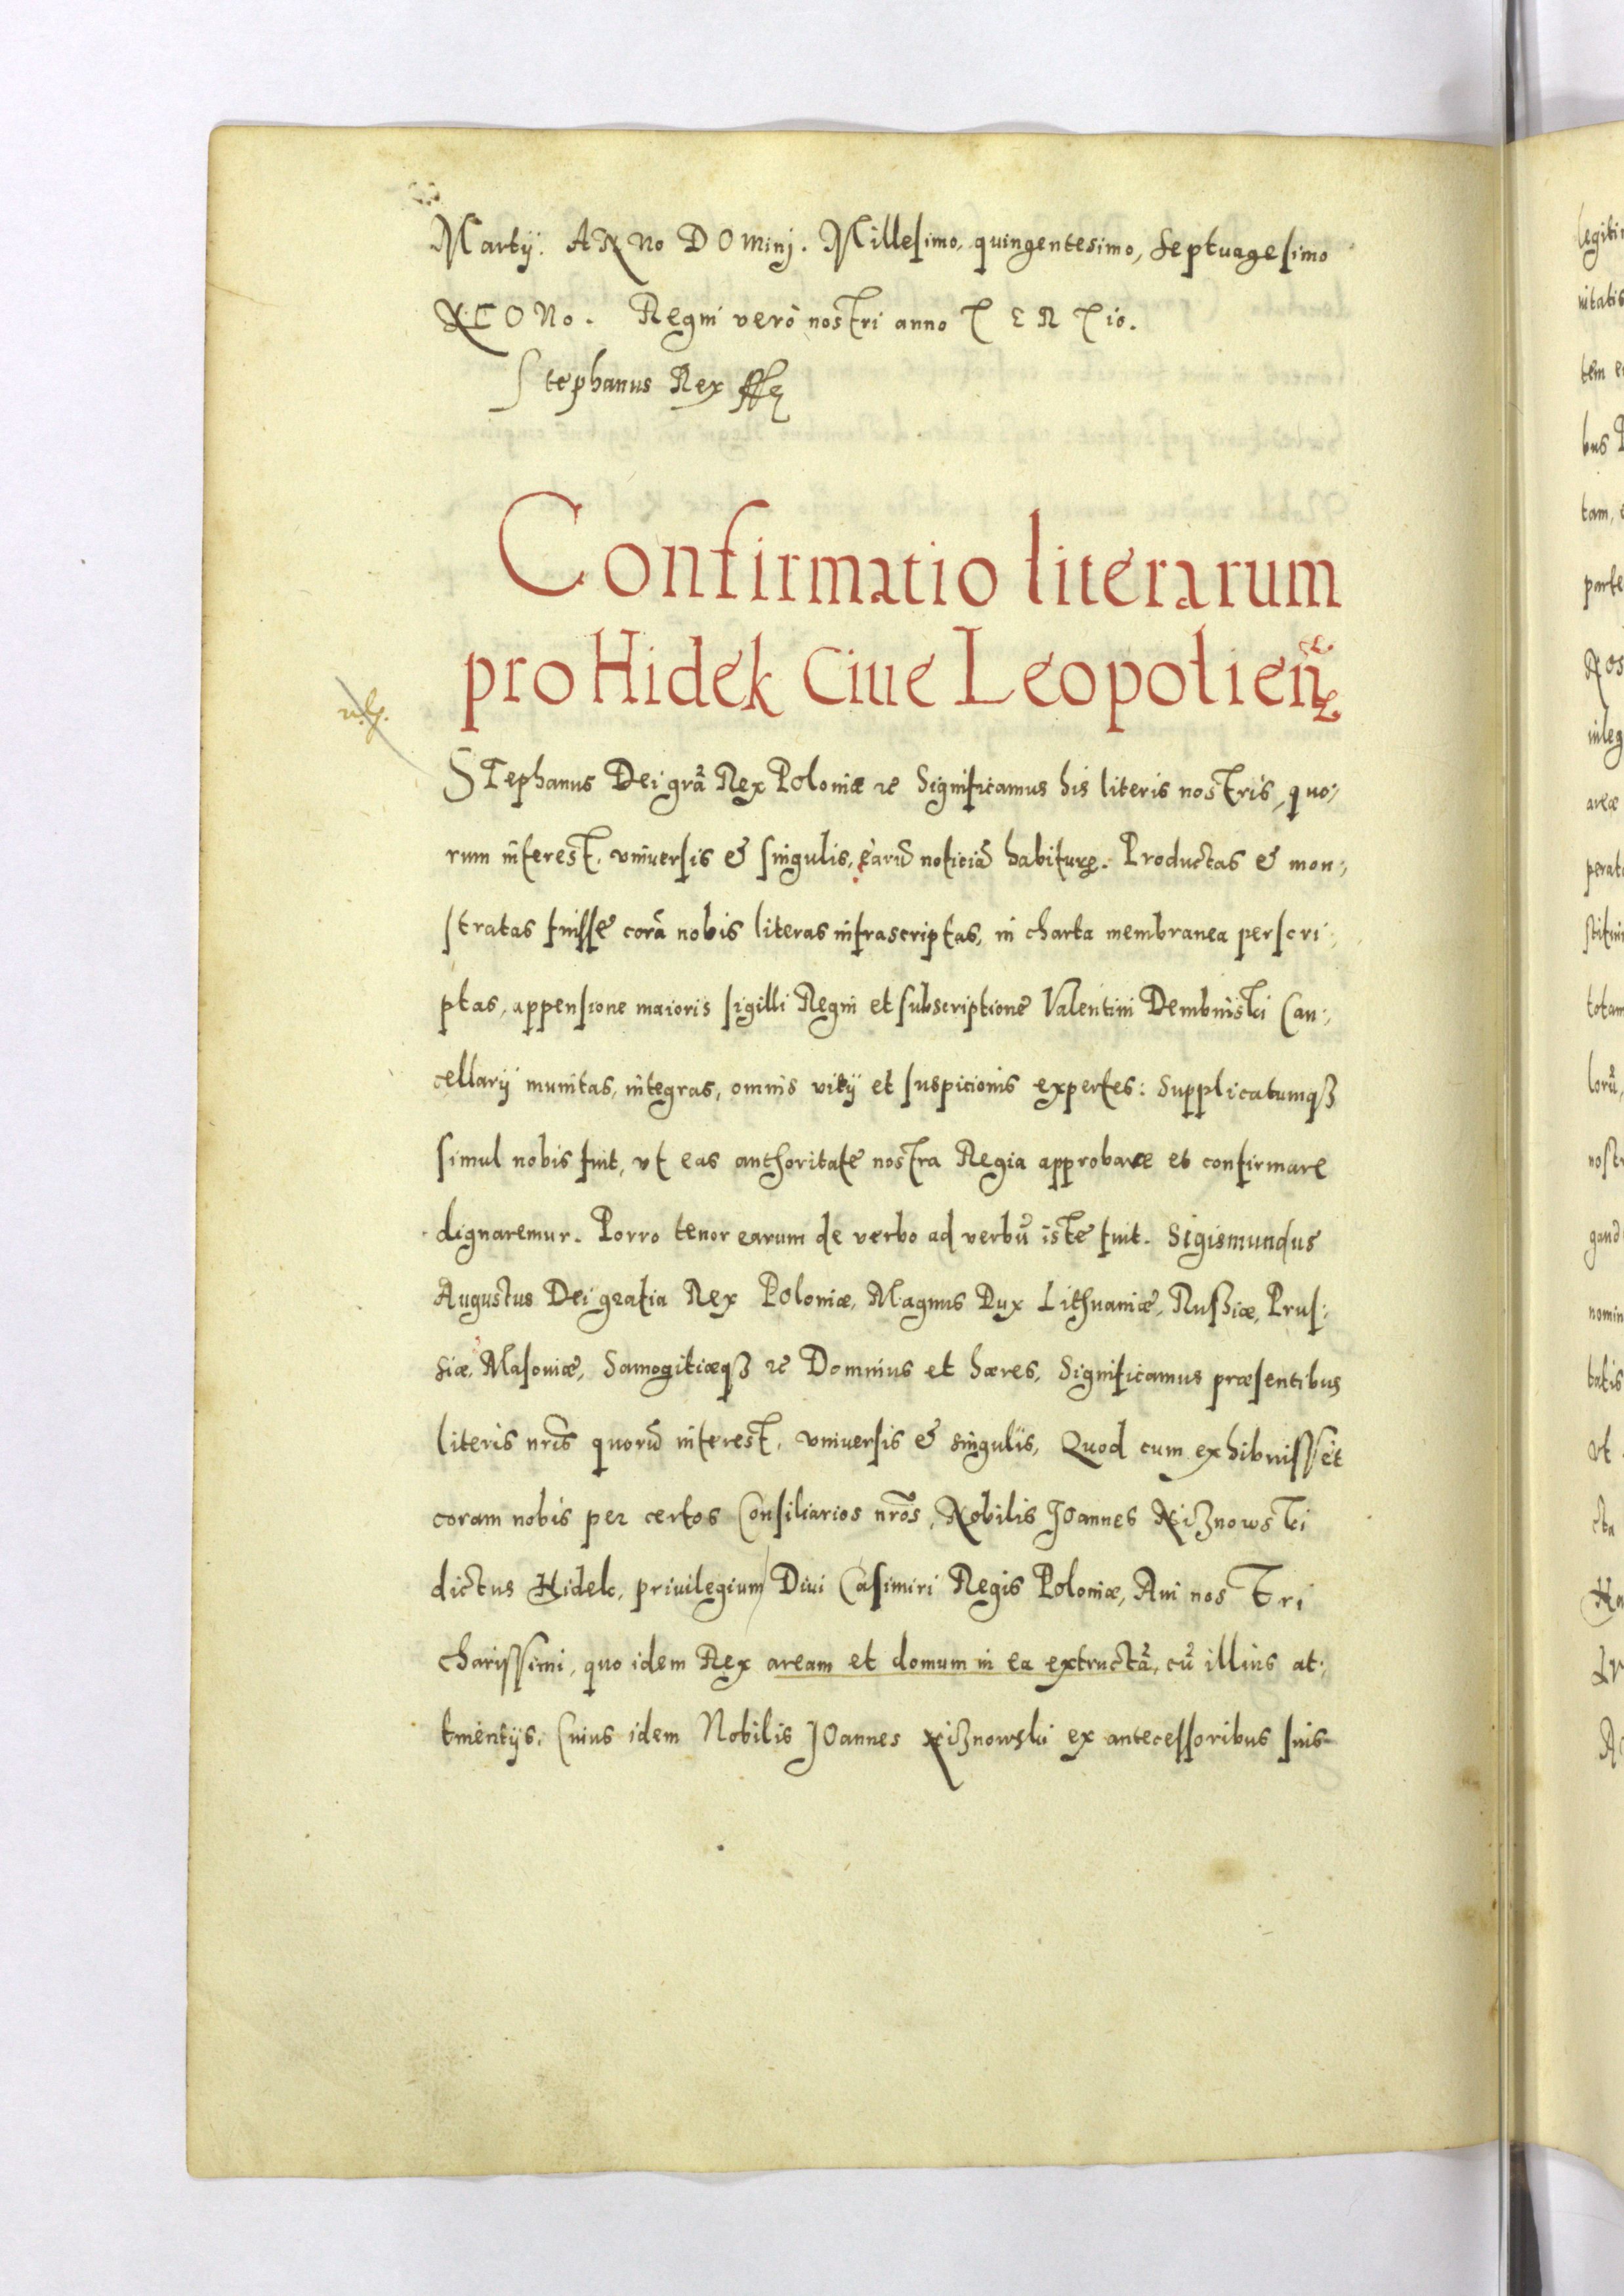 Martij. ANNo DOminj. Millesimo, quingentesimo, Septuagesimo
NONo. Regni verò nostri anno TERTio.
Stephanus Rex
Confirmatio literarum
pro Hidek Ciue Leopolien̄
STephanus Dei grã Rex Poloniæ ꝛc Significamus his literis nostris, quo:,
rum interest, vniuersis & singulis, earũ noticiã habituꝝ. Productas & mon:,
stratas fuisse corã nobis literas infrascriptas, in charta membranea perscri:,
ptas, appensione maioris sigilli Regni et subscriptione Valentini Dembinski Can:,
cellarij munitas, integras, omnis vitij et suspicionis expertes: Supplicatumqꝫ
simul nobis fuit, vt eas authoritate nostra Regia approbare et confirmare
dignaremur. Porro tenor earum de verbo ad verbũ iste fuit. Sigismundus
Augustus Dei gratia Rex Poloniæ, Magnus Dux Lithuaniæ, Rußiæ, Prus:
siæ, Masouiæ, Samogitiæqꝫ ꝛc Dominus et hæres, Significamus præsentibus
literis nr̃is quorũ interest, vniuersis & singulis, Quod cum exhibuisset
coram nobis per certos Consiliarios nr̃os, Nobilis JOannes Niznowski
dictus Hidek, priuilegium Diui Casimiri Regis Poloniæ, Aui nosTri
charissimi, quo idem Rex aream et domum in ea extructã, cũ illius at:,
tinentijs, Cuius idem Nobilis JOannes Niznowski ex antecessoribus suis